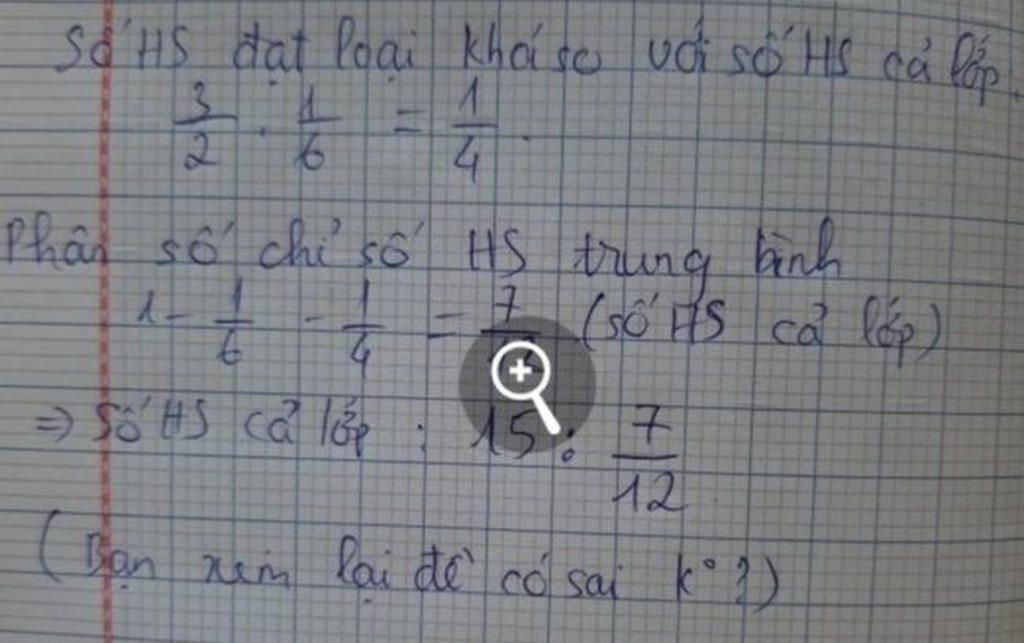 Số HS đạt loại khá so với số HS cả lớp.
3/2 . 1/6 = 1/4.
Phân số chỉ số HS trung bình
1 - 1/6 - 1/4 = 7/12 (số HS cả lớp)
=> Số HS cả lớp : 15 : 7/12
(Bạn xem lại đề có sai k° ?)